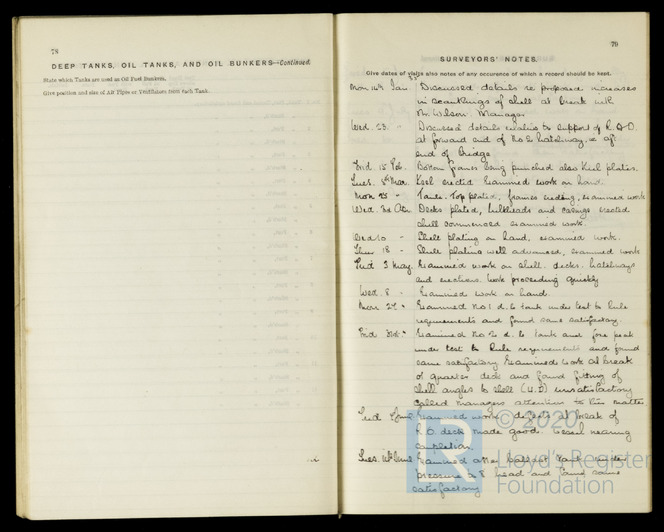 78
DEEP TANKS, OIL TANKS, AND OIL BUNKERS—Continued.
State which Tanks are used as Oil Fuel Bunkers.
Give position and size of Air Pipes or Ventilators from each Tank.
79
SURVEYORS' NOTES.
Give dates of visits also notes of any occurence of which a record should be kept.
Mon 14th Jan Discussed details re proposed increases
in scantlings of shell at break with
Mr. Wilson. Manager
Wed. 23. " Discussed details relative to support of R.Q.D.
at forward end of No 2 hatchway, aft
end of Bridge
Frid. 15 Feb. Bottom frames being punched also Keel plates.
Tues. 5th Mar. Keel erected Examined work on hand.
Mon 25 " Tank Top plated, frames erecting, examined work
Wed 3rd Apr Decks plated, bulkheads and casings erected
shell commenced examined work.
Wed 10 " Shell plating on hand, examined work.
Thur 18 " Shell plating well advanced, examined work
Frid 3 May. Examined work on shell, decks, hatchways
and erections. Work proceeding quickly
Wed. 8 " Examined work on hand.
Mon 27 " Examined No 1 d.b. tank under test to Rule
requirements and found same satisfactory.
Frid 31st " Examined No 2 d.b. tank and fore peak
under test to Rule requirements and found
same satisfactory Examined work at break
of quarter deck and found fitting of
shell angles to shell unsatisfactory
Called managers attention to this matter.
Examined work, defects at break of
R.Q. deck made good. Vessel nearing
completion.
Tues. Examined after ballast tank under
pressure 8' head and found same
satisfactory
© 2020
Lloyd's Register
Foundation